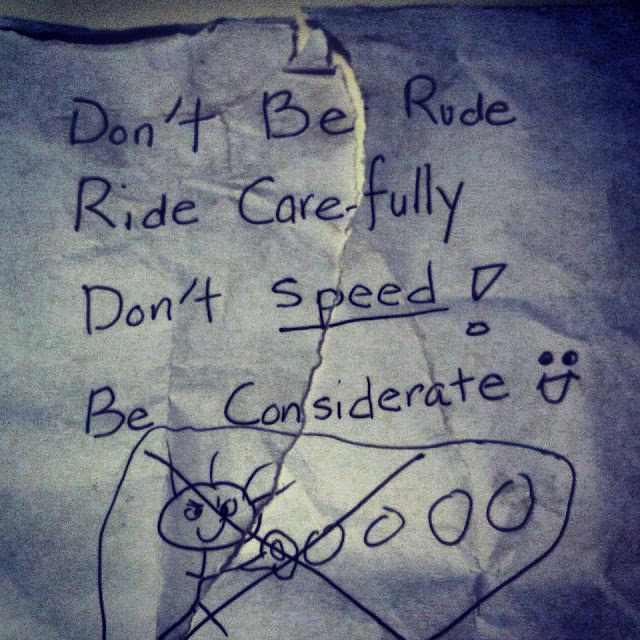 Don't Be Rude
Ride Carefully
Don't Speed!
Be Considerate